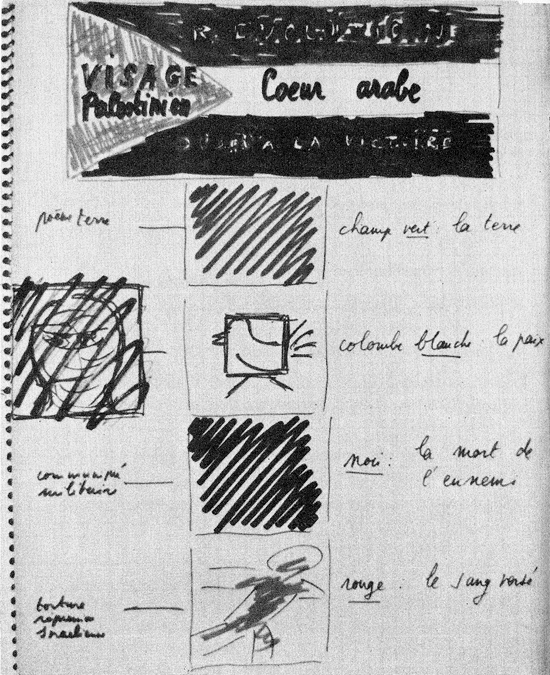 VISAGE
Palestinien
Coeur arabe
JUSQU'A LA VICTOIRE
poème terre
champ vert : la terre
colombe blanche : la paix
communiqué
militaire
noir : la mort de
l'ennemi
torture
répression
israelienne
rouge : le sang versé